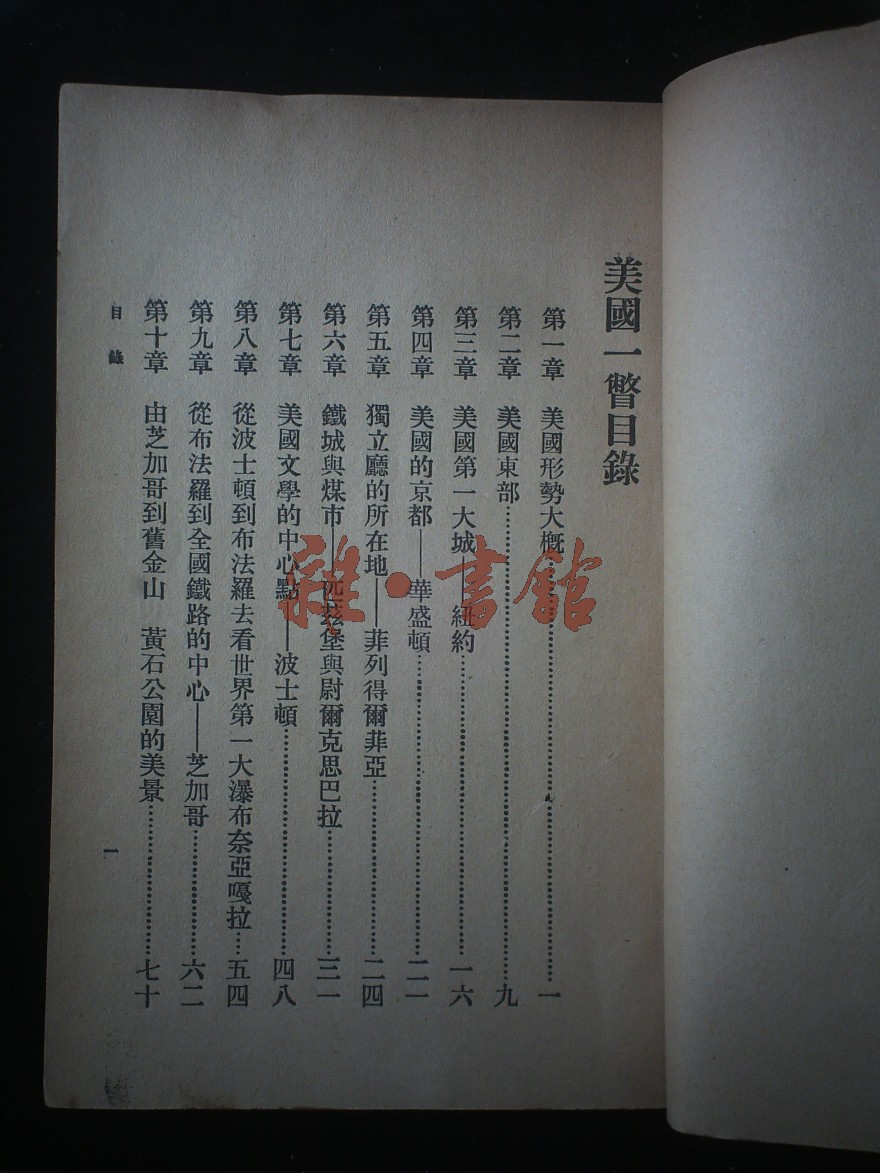 美國一瞥目錄
第一章 美國形勢大概……一
第二章 美國東部……九
第三章 美國第一大城——紐約……一六
第四章 美國的京都——華盛頓……二一
第五章 獨立廳的所在地——菲列得爾菲亞……二四
第六章 鐵城與煤市——匹茲堡與尉爾克思巴拉……三一
第七章 美國文學的中心點——波士頓……四八
第八章 從波士頓到布法羅去看世界第一大瀑布奈亞嘎拉……五四
第九章 從布法羅到全國鐵路的中心——芝加哥……六二
第十章 由芝加哥到舊金山 黃石公園的美景……七十
目錄
一
雜·書館